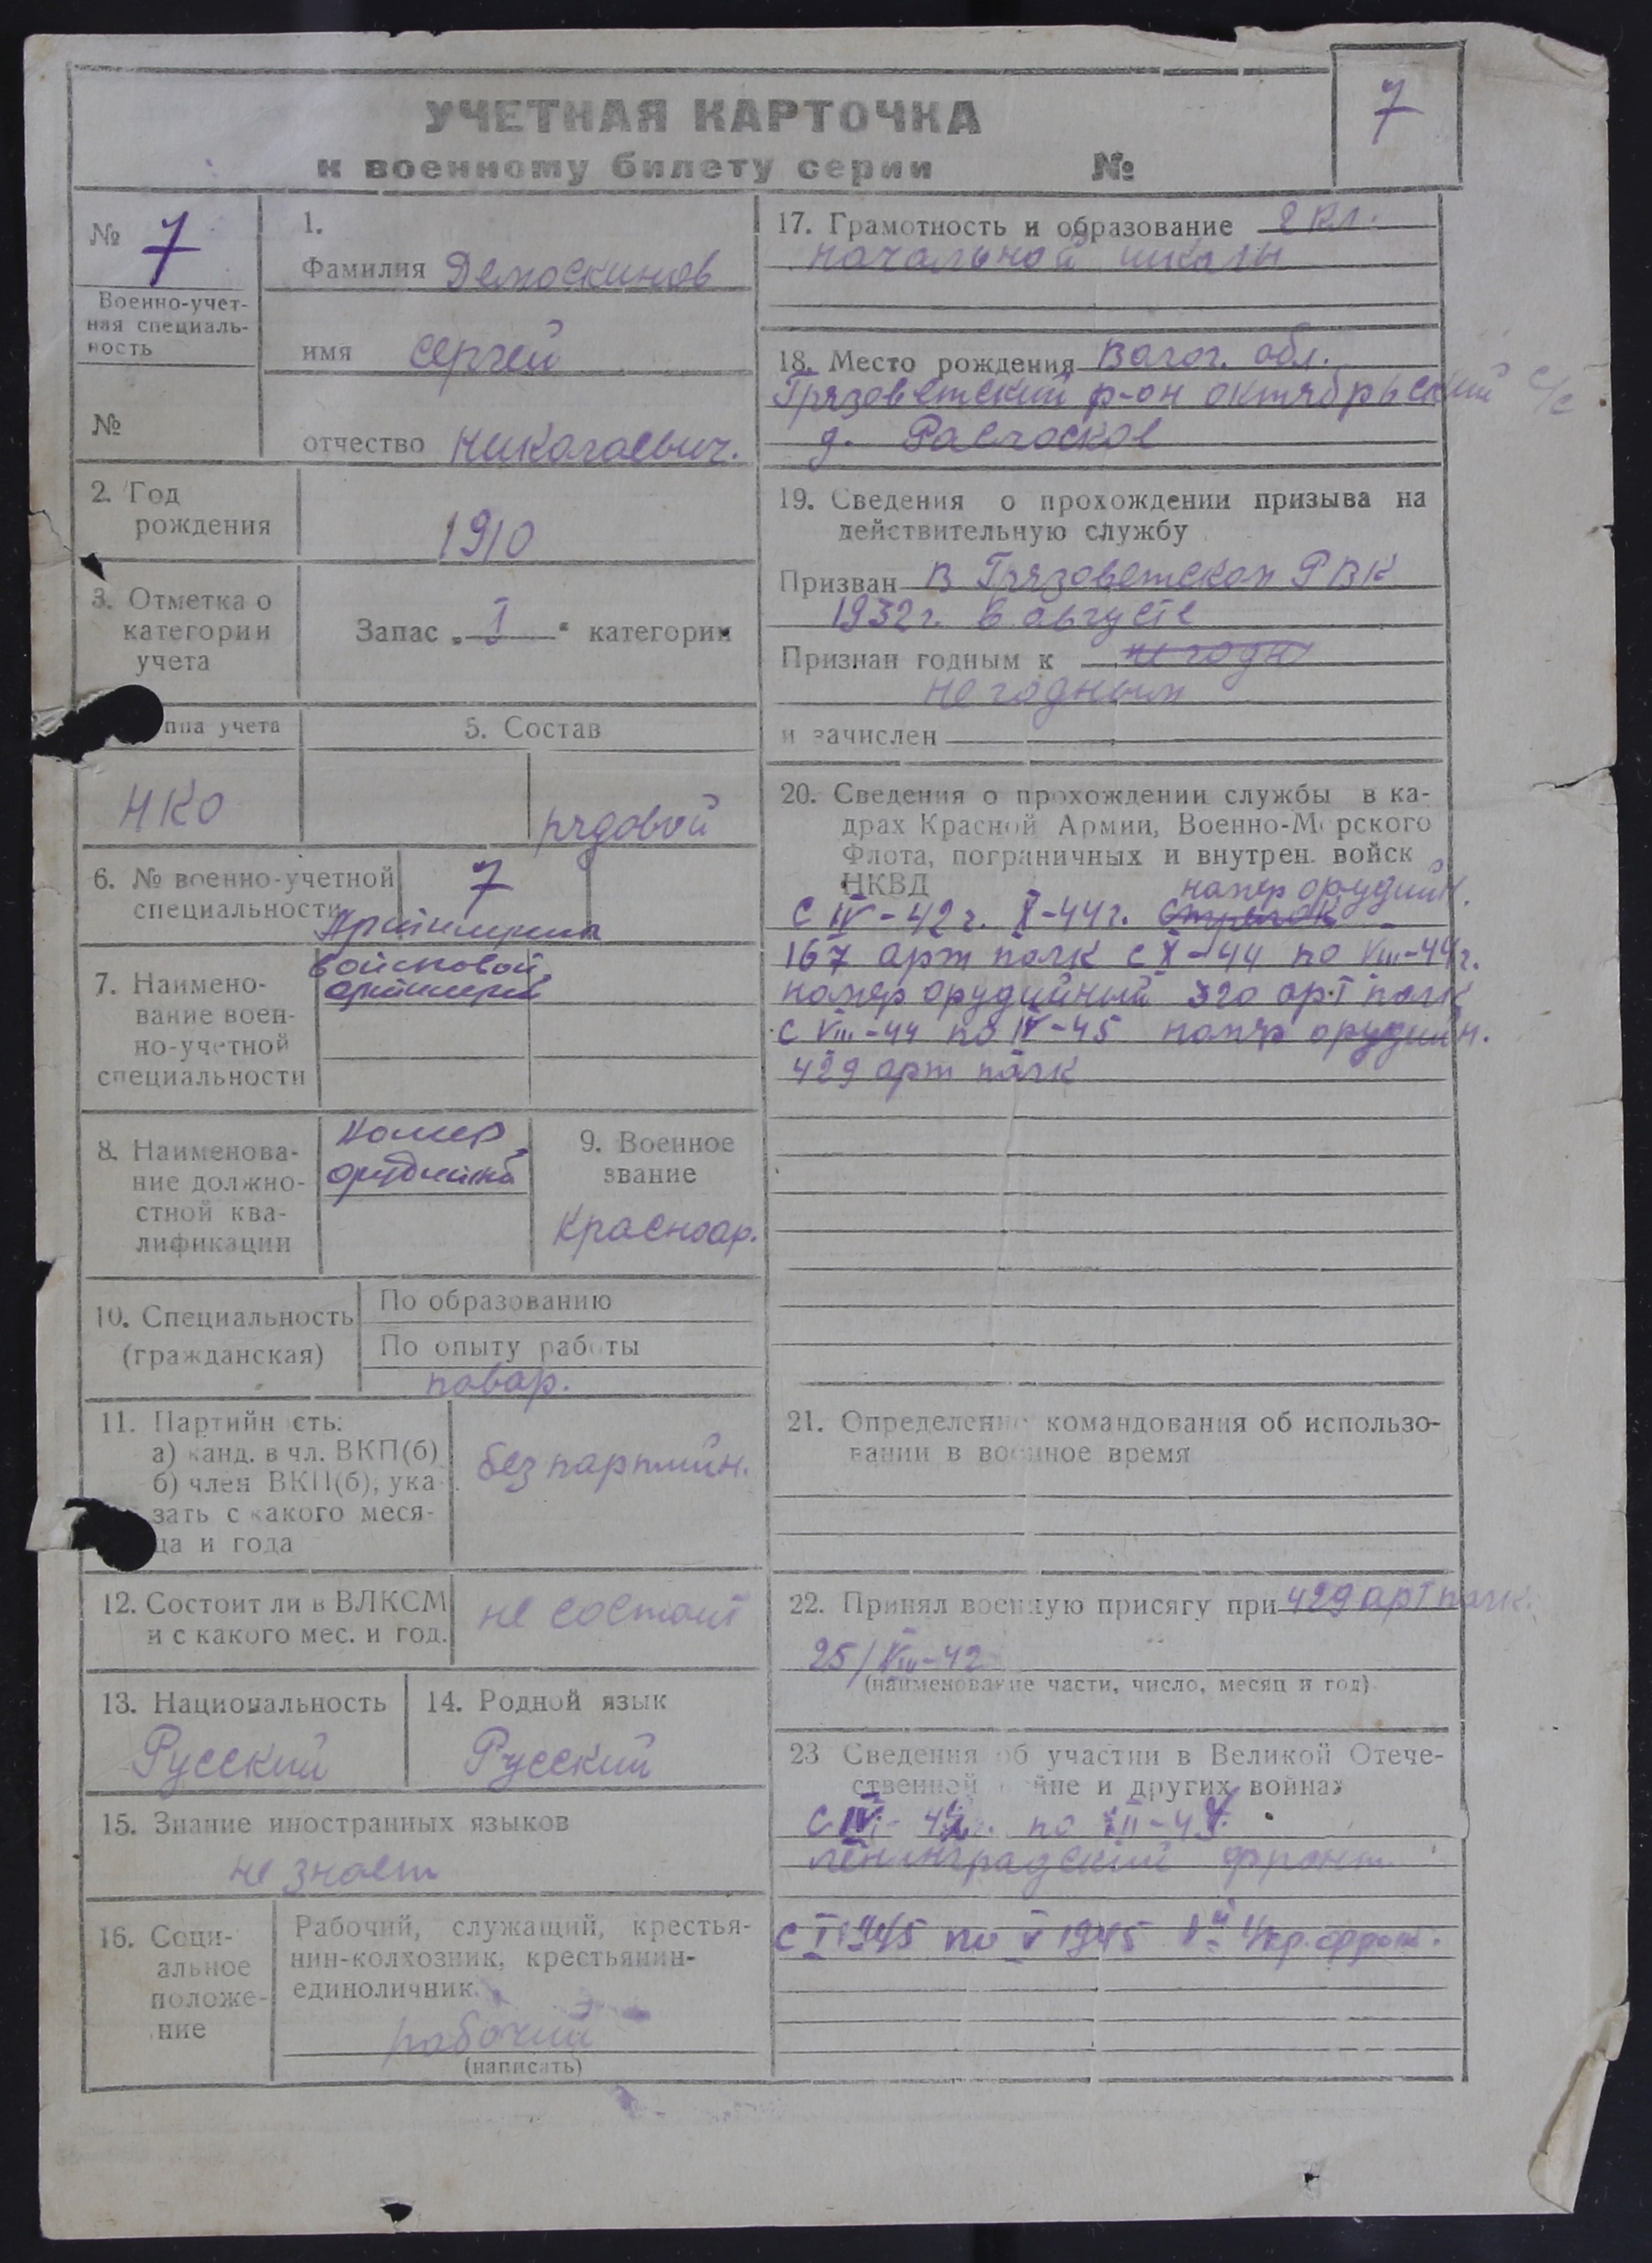 УЧЕТНАЯ КАРТОЧКА
к военному билету серии №
7
№ 7
Военно-учет-
ная специаль-
ность
№
1.
Фамилия Демоскинов
имя Сергей
отчество Николаевич.
2. Год
рождения
1910
3. Отметка о
категории
учета
Запас „I“ категории
ппа учета
НКО
5. Состав
рядовой
6. № военно-учетной
специальности
7
Артиллерия
7. Наимено-
вание воен-
но-учетной
специальности
войсковой
артиллерии
8. Наименова-
ние должно-
стной ква-
лификации
Номер
орудийный
9. Военное
звание
Красноар.
10. Специальность
(гражданская)
По образованию
По опыту работы
повар.
11. Партийн сть:
а) канд. в чл. ВКП(б)
б) член ВКП(б), ука-
зать с какого меся-
ца и года
без партийн.
12. Состоит ли в ВЛКСМ
и с какого мес. и год.
не состоит
13. Национальность
Русский
14. Родной язык
Русский
15. Знание иностранных языков
не знает
16. Соци-
альное
положе-
ние
Рабочий, служащий, крестья-
нин-колхозник, крестьянин-
единоличник.
рабочий
(написать)
17. Грамотность и образование 2 кл.
начальной школы
18. Место рождения Волог. обл.
Грязоветский р-он октябрьский с/с
д.
19. Сведения о прохождении призыва на
действительную службу
Призван В Грязоветском РВК
1932 г. в августе
Признан годным к не годн
не годным
и зачислен
20. Сведения о прохождении службы в ка-
драх Красной Армии, Военно-Морского
Флота, пограничных и внутрен. войск
НКВД
номер орудийн.
С IV-42 г. X-44 г. стрелок
167 арт полк с X-44 по VIII-44 г.
номер орудийный 320 арт полк
С VIII-44 по IV-45 номер орудийн.
429 арт полк
21. Определение командования об использо-
вании в военное время
22. Принял военную присягу при 429 арт полк.
25/VIII-42
(наименование части, число, месяц и год)
23 Сведения об участии в Великой Отече-
ственной войне и других войнах
С IV- 42 г. по XII-44.
ленинградский фронт.
С I 1945 по V 1945 1й Укр. фронт.